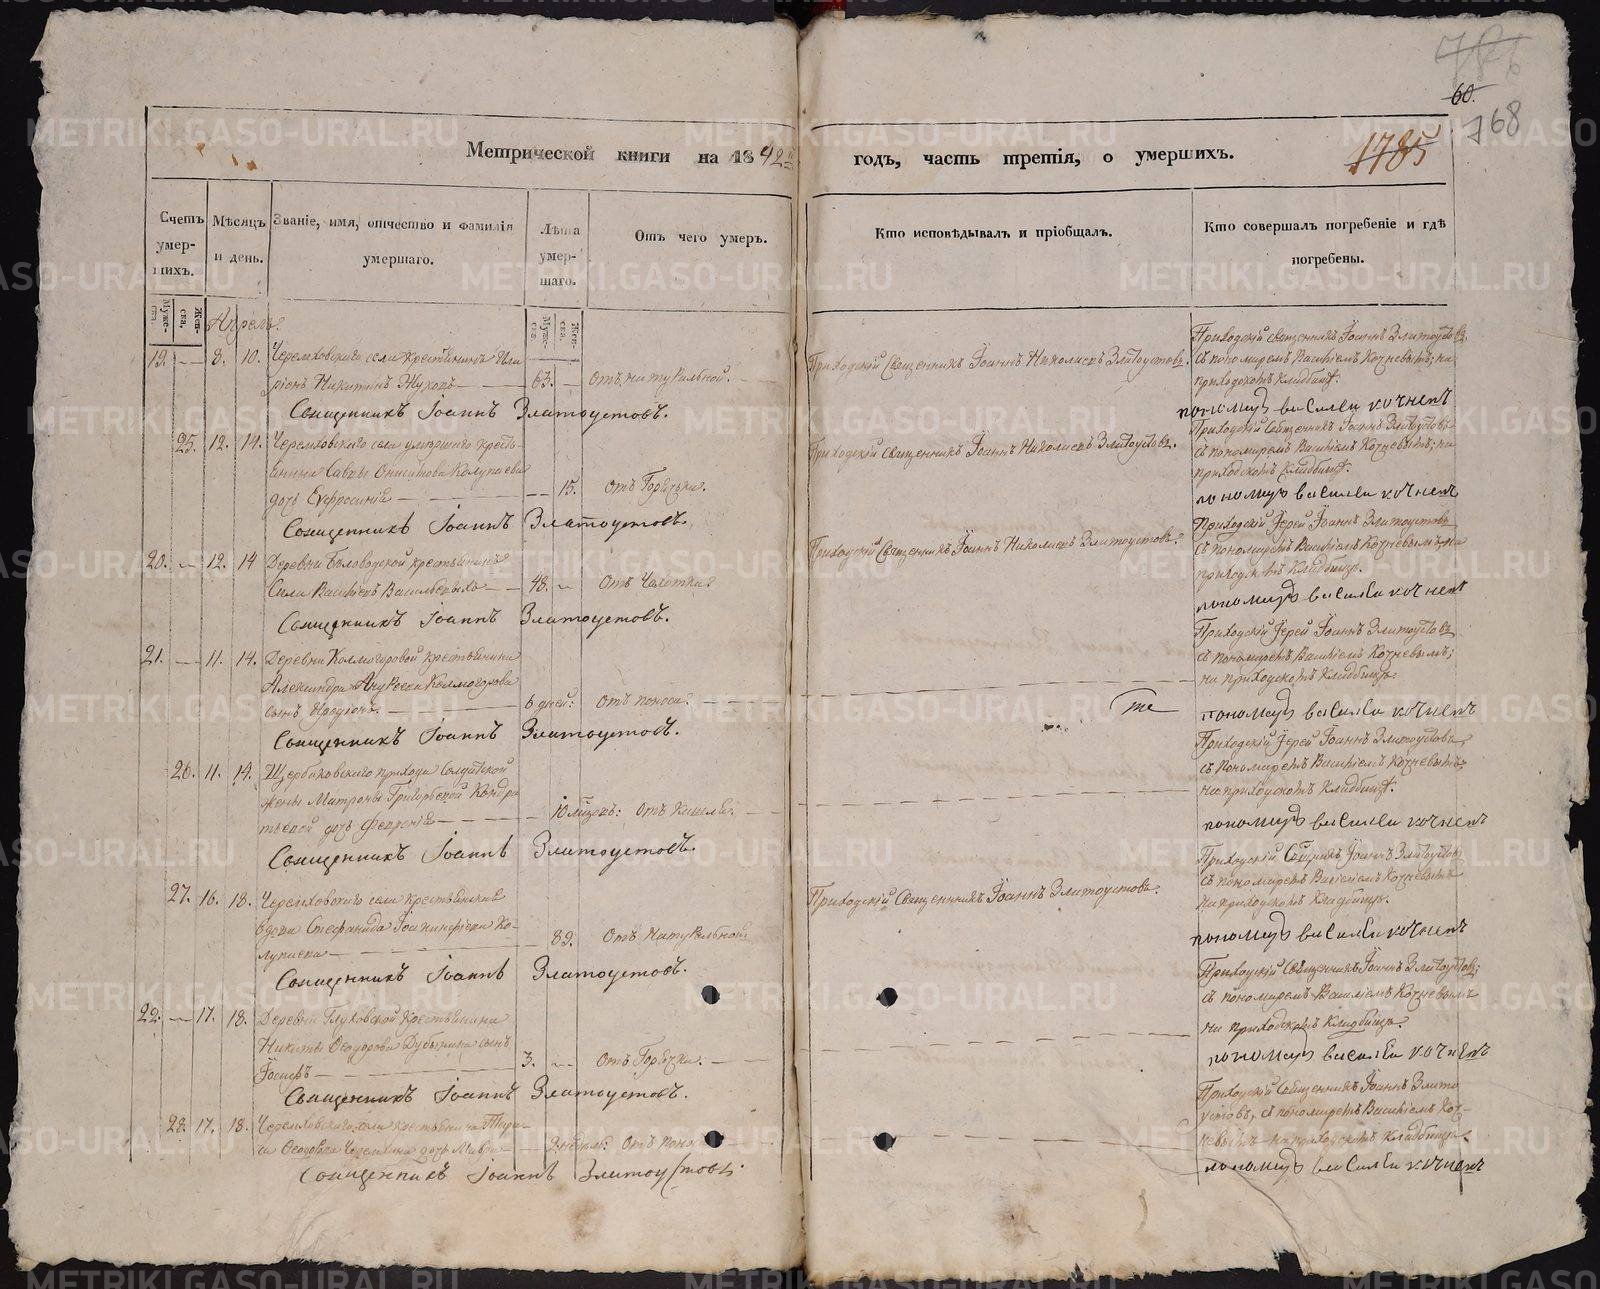 786
60.
768
1785
Метрической книги на 1842й годъ, часть третія, о умершихъ.
Счетъ умер-шихъ.
Мѣсяцъ и день.
Званіе, имя, отчество и фамилія умершаго.
Лѣта умер-шаго.
Отъ чего умеръ.
Кто исповѣдывалъ и пріобщалъ.
Кто совершалъ погребеніе и гдѣ погребены.
Муже-ска.
Жен-ска.
Муже-ска.
Жен-ска.
Апрель.
19. — 8. 10. Черемховскаго села крестьянинъ Ила
ріонъ Никитинъ Жуковъ — 63. — Отъ натуральной.
Приходскій Священникъ Іоаннъ Николаевъ Златоустовъ.
Приходскій священникъ Іоаннъ Златоустовъ
съ пономаремъ Василіемъ Кочневымъ, на
приходскомъ кладбищѣ.
Священникъ Іоаннъ Златоустовъ.
пономарь василеи кочневъ
25. 12. 14. Черемховскаго села умершаго кресть-
янина Саввы Онисимова Колупаева
дочь Евфросинія — — 15. Отъ Горячки.
Приходскій священникъ Іоаннъ Николаевъ Златоустовъ.
Приходскій Священникъ Іоаннъ Златоустовъ
съ пономаремъ Василіемъ Кочневымъ, на
приходскомъ кладбищѣ.
Священникъ Іоаннъ Златоустовъ.
пономарь василеи кочневъ
20. — 12. 14 Деревни Бѣловодской крестьянинъ
Сила Васильевъ — 48. — Отъ Чахотки
Приходскій Священникъ Іоаннъ Николаевъ Златоустовъ.
Приходскій Іерей Іоаннъ Златоустовъ
съ пономаремъ Василіемъ Кочневымъ, на
приходскомъ кладбищѣ.
Священникъ Іоаннъ Златоустовъ.
пономарь василеи кочневъ
21. — 11. 14. Деревни Колмогоровой крестьянина
Александра Колмогорова
сынъ — 6 дней: Отъ поноса.
Приходскій Іерей Іоаннъ Златоустовъ
съ пономаремъ Василіемъ Кочневымъ;
на приходскомъ кладбищѣ.
Священникъ Іоаннъ Златоустовъ.
пономарь василеи кочневъ
26. 11. 14. Щербаковскаго прихода Солдатской
жены Матроны Григорьевой Кондра
тьевой дочь Февронія — 10 мѣсяцъ: Отъ Кашля.
Приходскій Іерей Іоаннъ Златоустовъ,
съ Пономаремъ Василіемъ Кочневымъ;
на приходскомъ кладбищѣ.
Священникъ Іоаннъ Златоустовъ.
пономарь василеи кочневъ
27. 16. 18. Черемховскаго села крестьянская
вдова Стефанида Іоакинфіева Ко-
лупаева — 89. Отъ Натуральной
Приходскій Священникъ Іоаннъ Златоустовъ.
Приходскій Іоаннъ Златоустовъ
съ пономаремъ Василіемъ Кочневымъ
на приходскомъ кладбищѣ.
Священникъ Іоаннъ Златоустовъ.
пономарь василеи кочневъ
22. — 17. 18. Деревни Глуховской крестьянина
Никиты Ѳеодорова Дубынина сынъ
Іосифъ — 3. — Отъ Горячки.
Приходскій Священникъ Іоаннъ Златоустовъ;
съ пономаремъ Василіемъ Кочневымъ
на приходскомъ кладбищѣ.
Священникъ Іоаннъ Златоустовъ.
пономарь василеи кочневъ
28. 17. 18. Черемховскаго села крестьянина
Ѳеодорова дочь Мавра — 3 недѣль: Отъ поноса
Приходскій Священникъ Іоаннъ Злато
устовъ, съ пономаремъ Василіемъ Коч-
невымъ на приходскомъ кладбищѣ.
Священникъ Іоаннъ Златоустовъ.
пономарь василеи кочневъ
METRIKI.GASO-URAL.RU